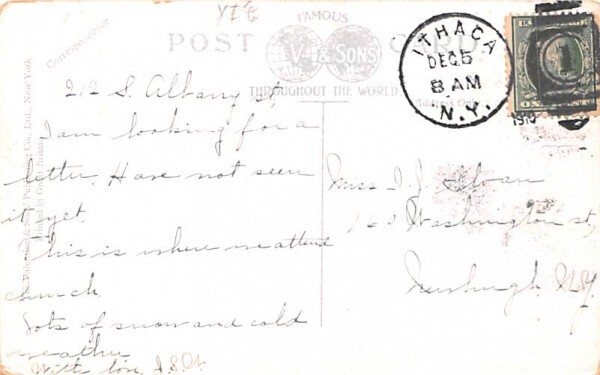 YIE
FAMOUS
POST CARD
V & SONS
THROUGHOUT THE WORLD
Correspondence
ITHACA
DEC 5
8 AM
N.Y.
1910
212 S. Albany st
I am looking for a
letter. Have not seen
it yet.
This is where we attend
church.
Lots of snow and cold
weather
With love,
Miss I. J. Sloan
160 Washington st,
Newburgh N.Y.